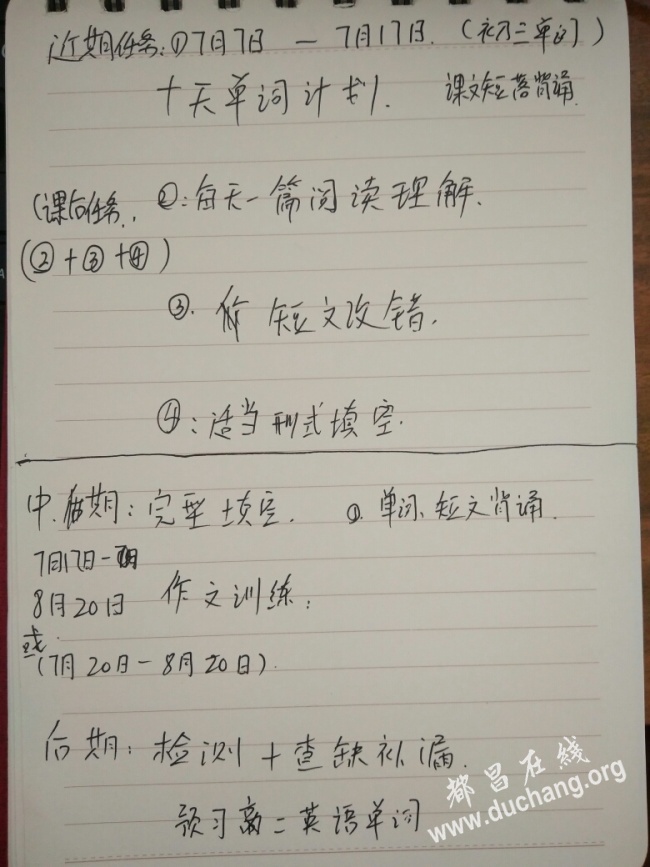 近期任务:①7月7日 — 7月17日.(初三单词)
十天单词计划. 课文短落背诵.
(课后任务. ②:每天一篇阅读理解.
(②+③+④)
③. 作 短文改错.
④:适当形式填空.
中.后期:完型填空. ①.单词.短文背诵.
7月17日-
8月20日 作文训练;
或.
(7月20日-8月20日).
后期:检测+查缺补漏.
预习高二英语单词
都昌在线
www.duchang.org